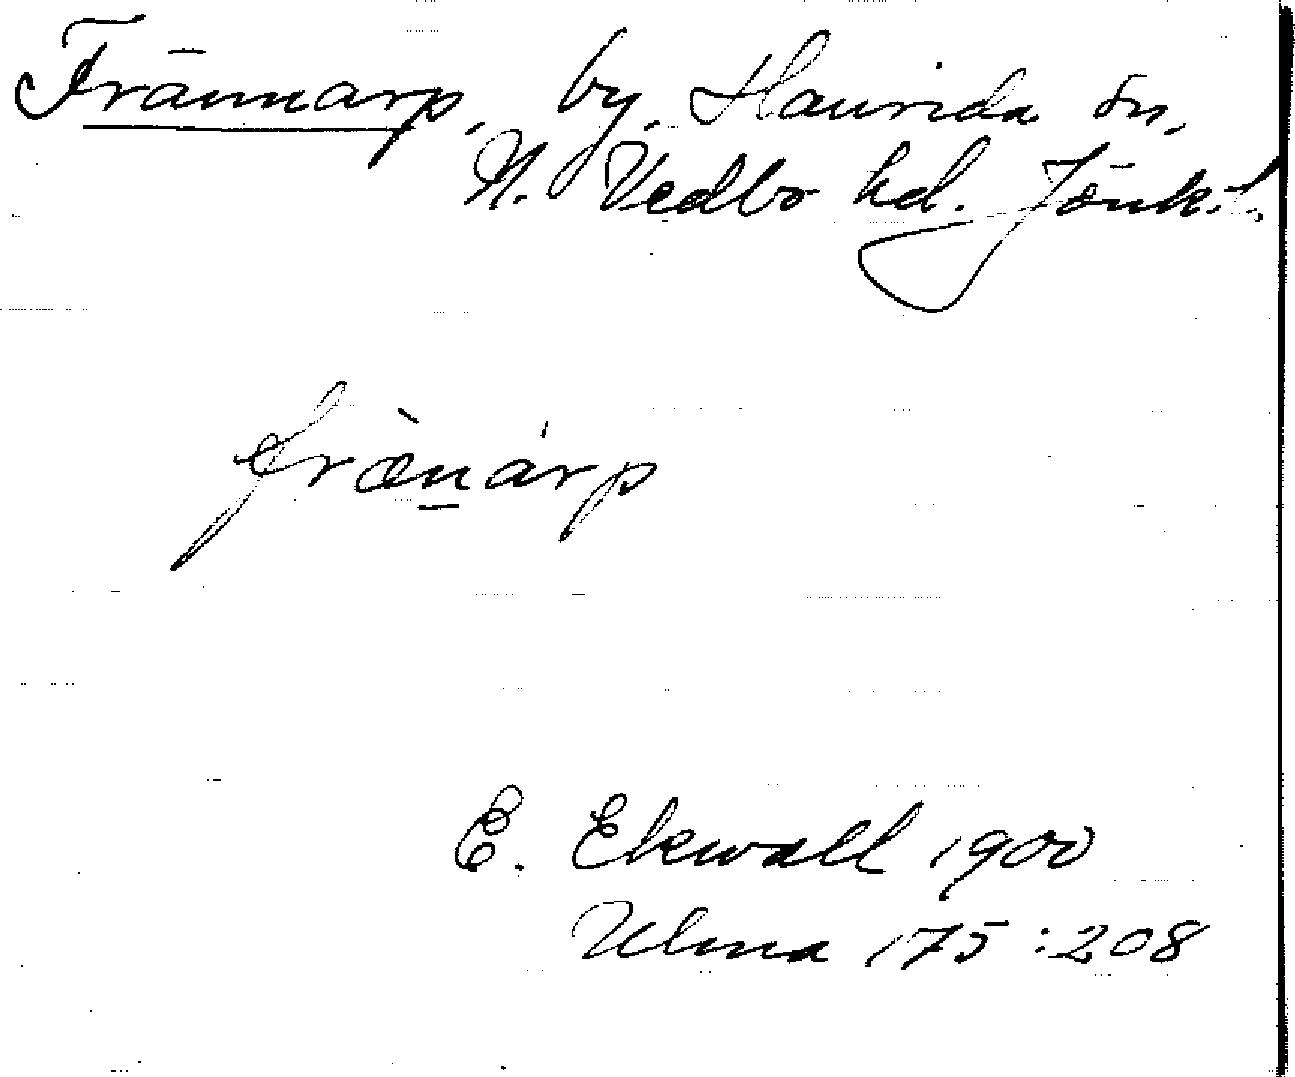 Frännarp, by, Haurida sn,
N. Vedbo hd. Jönk.l.
fræ̀nárp
E. Ekwall 1900
Ulma 175:208